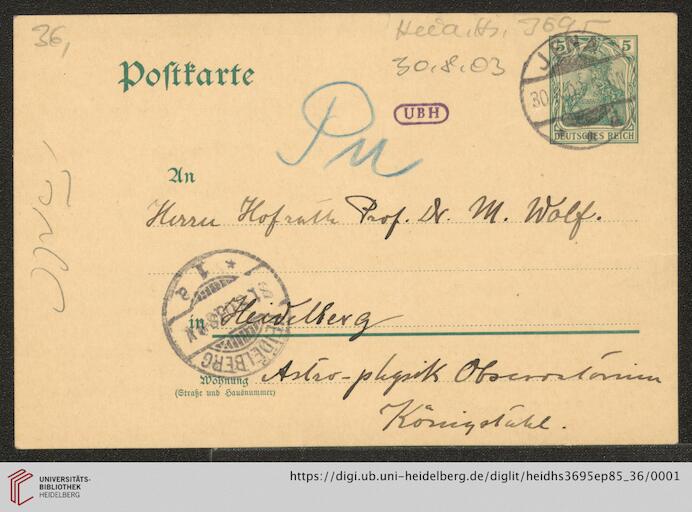 36,
Heid. Hs. 3695
30.8.03
Postkarte
5
JENA
30
DEUTSCHES REICH
UBH
Pu
An
Herrn Hofrath Prof. Dr. M. Wolf.
HEIDELBERG
* 1 a
in Heidelberg
Wohnung
(Straße und Hausnummer)
Astro-physik Observatorium
Königstuhl.
UNIVERSITÄTS-
BIBLIOTHEK
HEIDELBERG
https://digi.ub.uni-heidelberg.de/diglit/heidhs3695ep85_36/0001